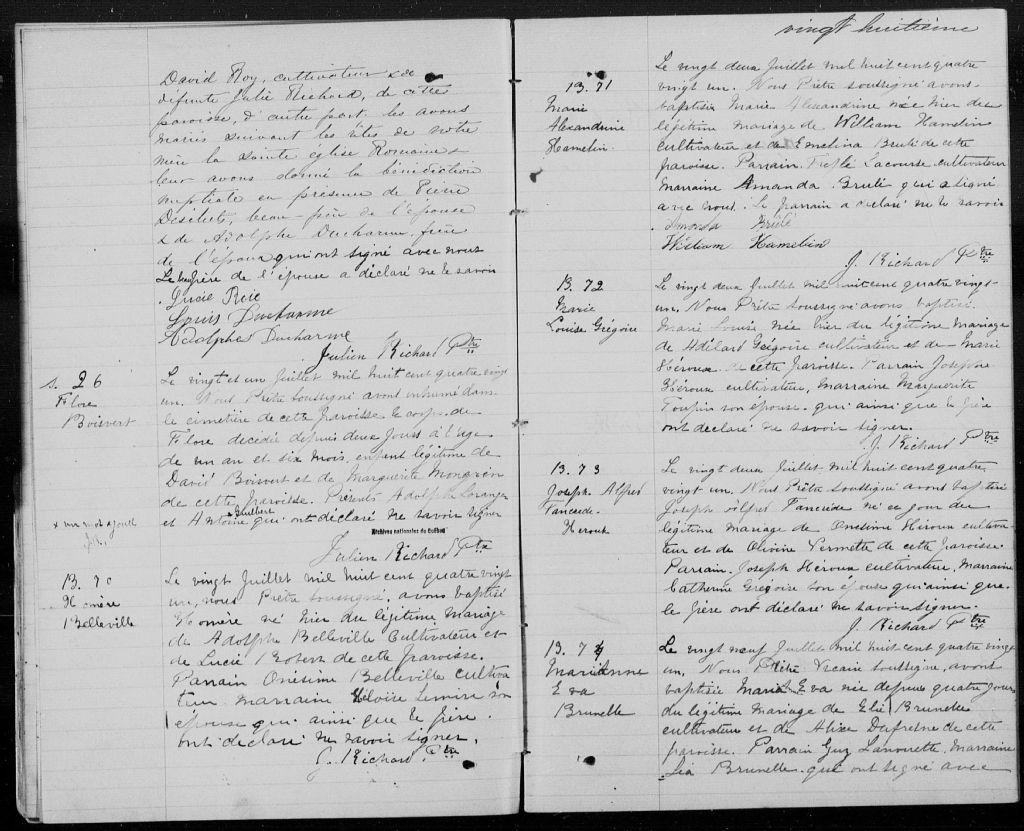 David Roy, cultivateur & de
défunte Julie Richard, de cette
paroisse, d'autre part, les avons
mariés suivant les rites de notre
mère la sainte église Romaine &
leur avons donné la bénédiction
nuptiale en présence de Pierre
Désilets, beau-père de l'épouse
& de Adolphe Ducharme, frère
de l'époux qui ont signé avec nous
Le beau père de l'épouse a déclaré ne le savoir
Lucie
Louis Ducharme
Adolphe Ducharme
Julien Richard Ptre
S. 26
Flore
Boisvert
Le vingt et un Juillet mil huit cent quatre vingt
un. Nous Prêtre soussigné avons inhumé dans
le cimetière de cette paroisse le corps de
Flore décédé depuis deux jours à l'age
de un an et six mois, enfant légitime de
David Boisvert et de Marguerite Mongrain
de cette paroisse. Présents Adolphe Loranger
et Antoine qui ont déclaré ne savoir signer
x un mot ajouté
Archives nationales du Québec
Julien Richard Ptre
B. 70
Homère
Belleville
Le vingt Juillet mil huit cent quatre vingt
un, nous Prêtre soussigné, avons baptisé
Homère né hier du légitime mariage
de Adolphe Belleville Cultivateur et
de Lucie Robert de cette paroisse.
Parrain Onésime Belleville cultiva
teur marraine Héloise Lemire son
épouse qui ainsi que le père
ont déclaré ne savoir signer.
J. Richard Ptre
vingt huitième
B. 71
Marie
Alexandrine
Hamelin
Le vingt deux Juillet mil huit cent quatre
vingt un. Nous Prêtre soussigné avons
baptisé Marie Alexandrine née hier du
légitime mariage de William Hamelin
cultivateur et de Emelina Brulé de cette
paroisse. Parrain Lacourse cultivateur
marraine Amanda Brulé qui a signé
avec nous. Le parrain a déclaré ne le savoir
Amanda Brulé
William Hamelin
J. Richard Ptre
B. 72
Marie
Louise Grégoire
Le vingt deux Juillet mil huit cent quatre vingt
un, Nous Prêtre soussigné avons baptisé
Marie Louise née hier du légitime mariage
de Adélard Grégoire cultivateur et de Marie
Héroux de cette paroisse. Parrain Joseph
Héroux cultivateur, Marraine Marguerite
Toupin son épouse qui ainsi que le père
ont déclaré ne savoir signer.
J. Richard Ptre
B. 73
Joseph Alfred
Tancrède
Heroux
Le vingt deux Juillet mil huit cent quatre
vingt un. Nous Prêtre soussigné avons baptisé
Joseph Alfred Tancrède né ce jour du
légitime mariage de Onesime Héroux cultiva-
teur et de Olivine Vermette de cette paroisse
Parrain Joseph Héroux cultivateur, Marraine
Catherine Grégoire son épouse qui ainsi que
le père ont déclaré ne savoir signer.
J. Richard Ptre
B. 74
Marie Anne
Eva
Brunelle
Le vingt neuf Juillet mil huit cent quatre vingt
un, Nous Prêtre Vicaire soussigné, avons
baptisée Marie Eva née depuis quatre jours
du légitime mariage de Elie Brunelle
cultivateur et de Alixe Dufresne de cette
paroisse. Parrain Guy Lanouette, Marraine
Lia Brunelle qui ont signé avec